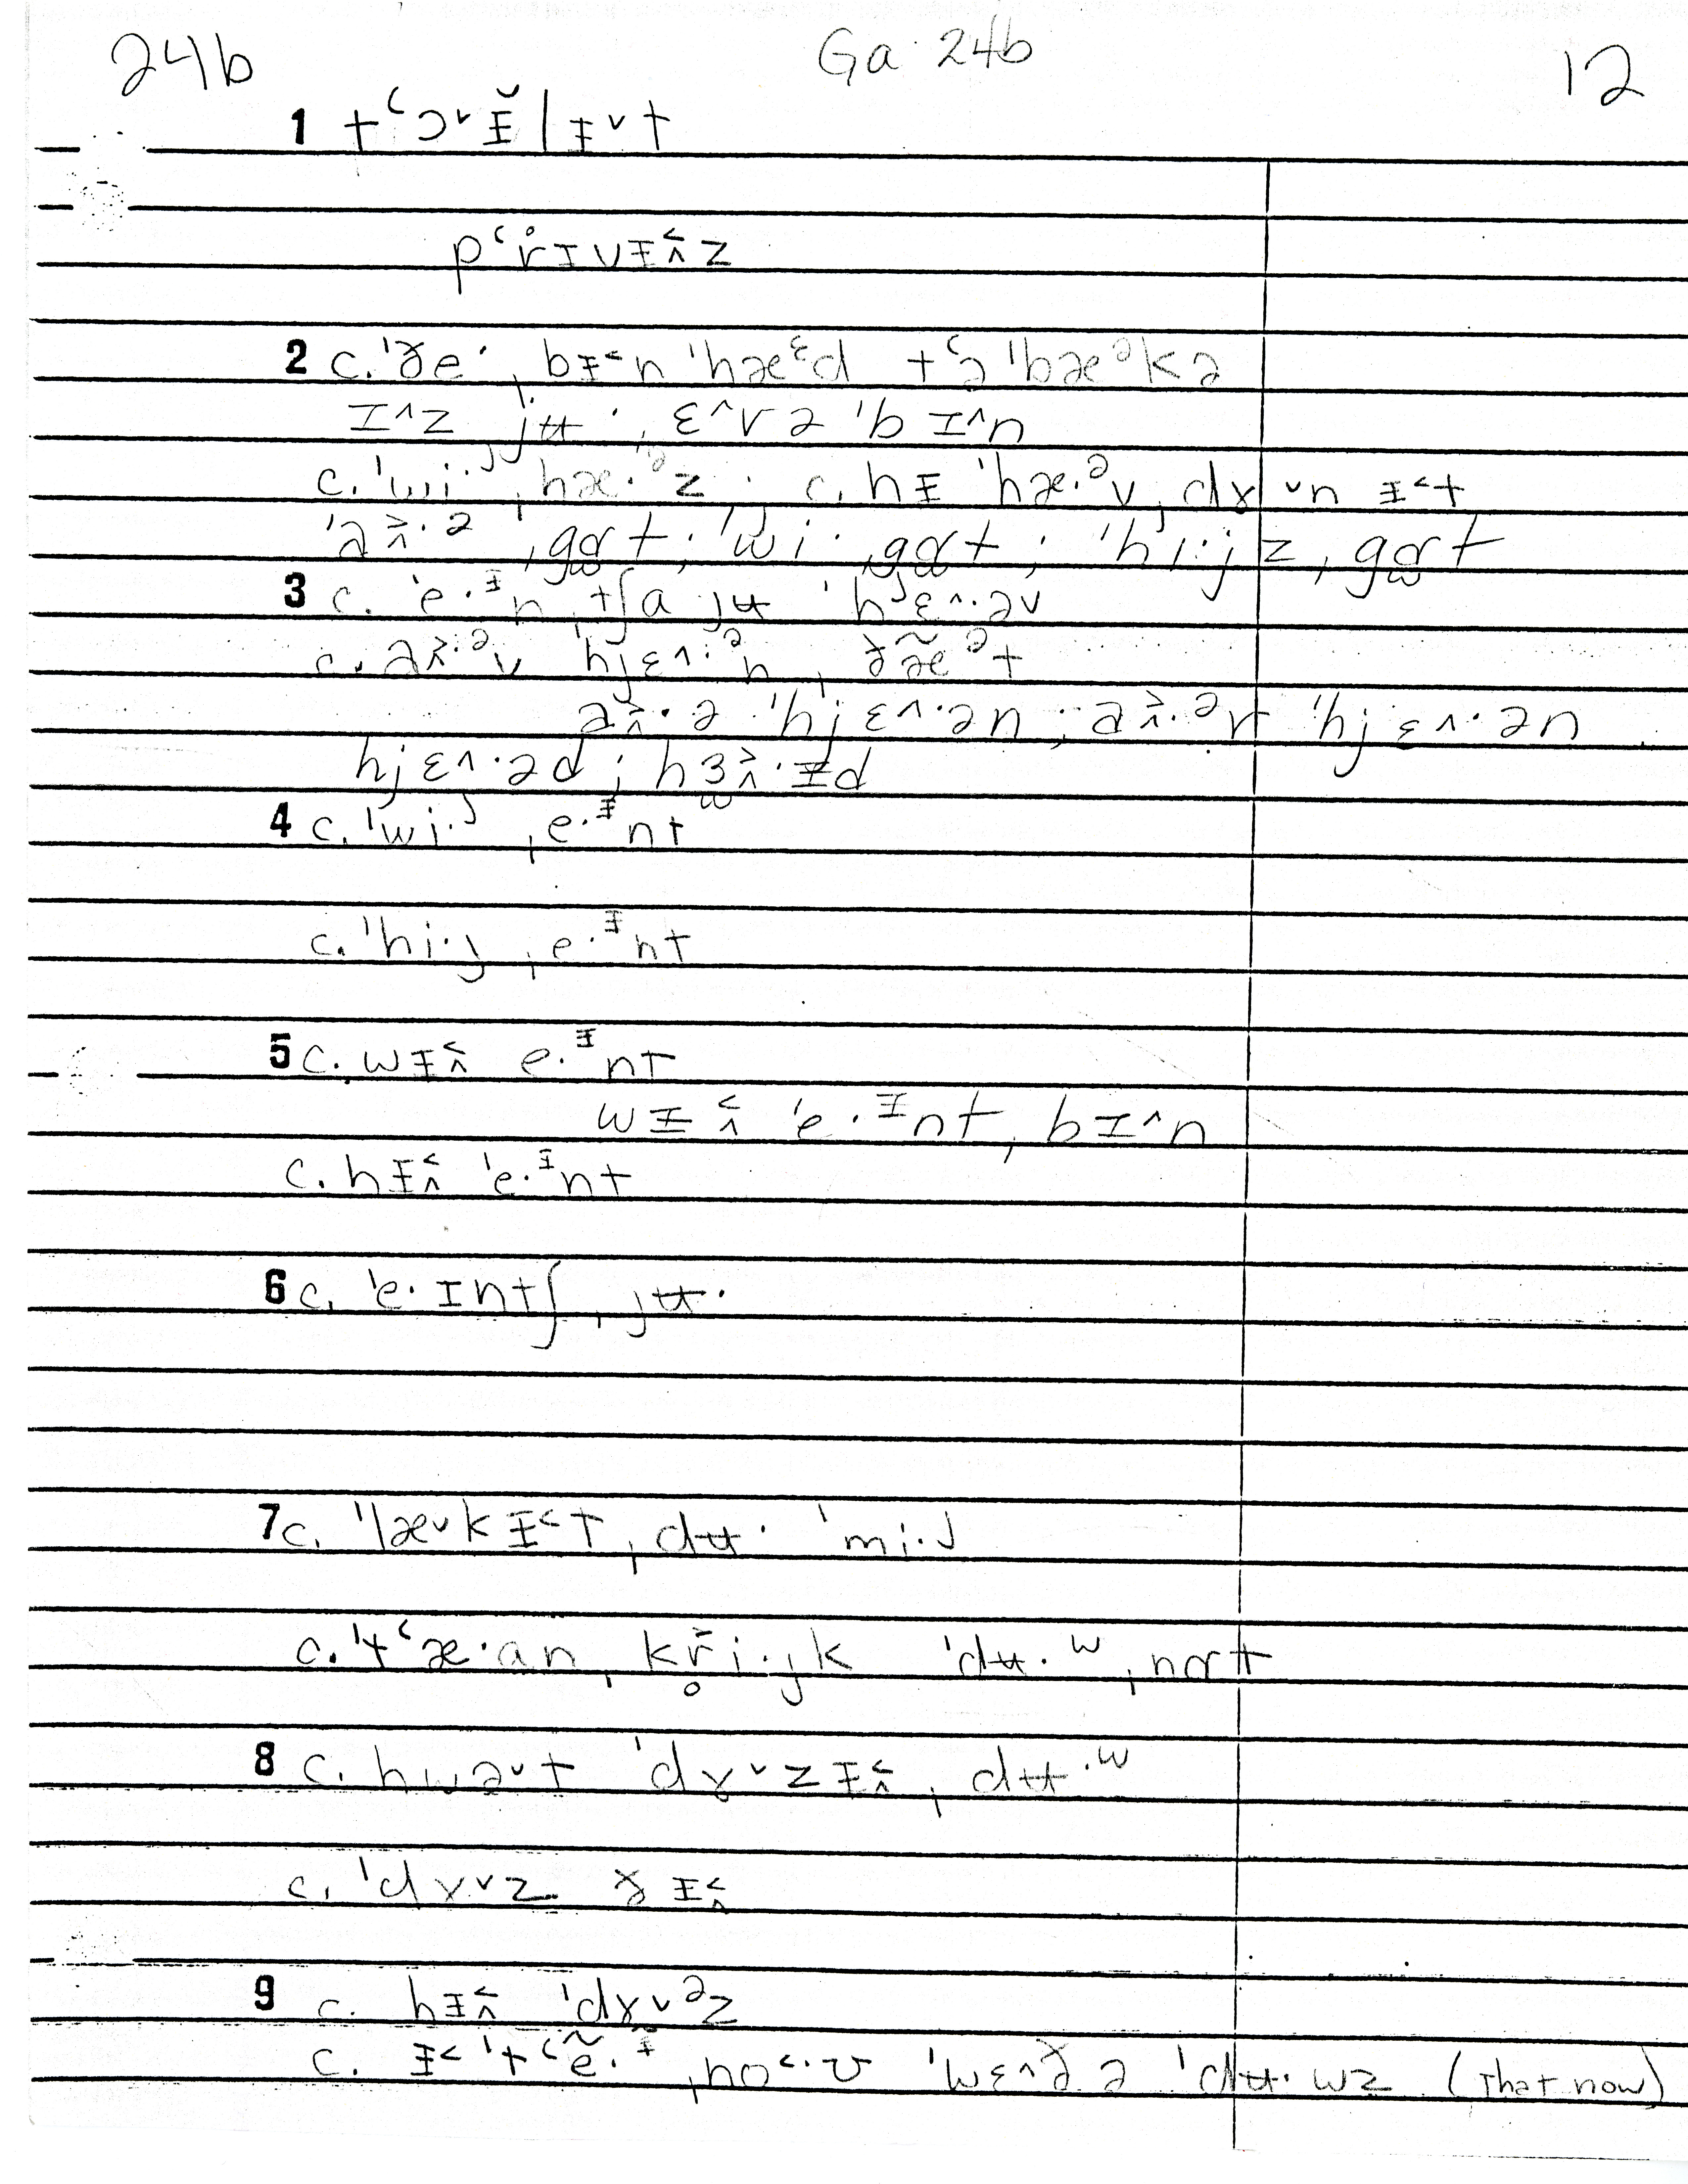 24b Ga 24b 12
1 tʽɔ˅ɨ̆lɨ˅t
pʽr̥ɪvɨ˂˄z
2 c. ˈðe·ˌbɨ˂n ˈhæᵋd tʽə ˈbæᵊkə
ɪ˄z ˌjʉ· ˌɛ˄və ˈbɪ˄n
c. ˈwi·ʲ ˌhæ·ᵊz · c. hɨ ˈhæ·ᵊv ˌdɤ˅n ɨ˂t
ˌgɑt ; ˈwi· ˌgɑt ; ˈhi·jz ˌgɑt
3 c. ˈe·ᶤn ˌtʃa jʉ ˈhʲɛ˄·əv
hjɛ˄·ᵊn ˌðæ̃ᵊt
ˈhjɛ˄·ən ; ˈhjɛ˄·ən
hjɛ˄·əd ; hɜ˃˄·ɨd
4 c. ˈwi·ʲ ˌe·ᶤnt
c. ˈhi·j ˌe·ᶤnt
5 c. wɨ˂˄ e·ᶤnt
wɨ˂˄ ˈe·ᶦnt ˌbɪ˄n
c. hɨ˂˄ ˈe·ᶤnt
6 c. ˈe·ɪntʃ ˌjʉ·
7 c. ˈlæ˅kɨ˂t ˌdʉ· ˈmi·j
c. ˈtʽæ·an ˌkr̥̆i·jk ˈdʉ·ʷ ˌnɑt
8 c. hwə˅t ˈdɤ˅zɨ˂˄ ˌdʉ·ʷ
c. ˈdɤ˅z ðɨ˂˄
9 c. hɨ˂˄ ˈdɤ˅ᵊz
c. ɨ˂ ˈtʽẽ·ᶤ ˌno˂·ʊ ˈwɛ˄ðə ˈdʉ·wz (that now)